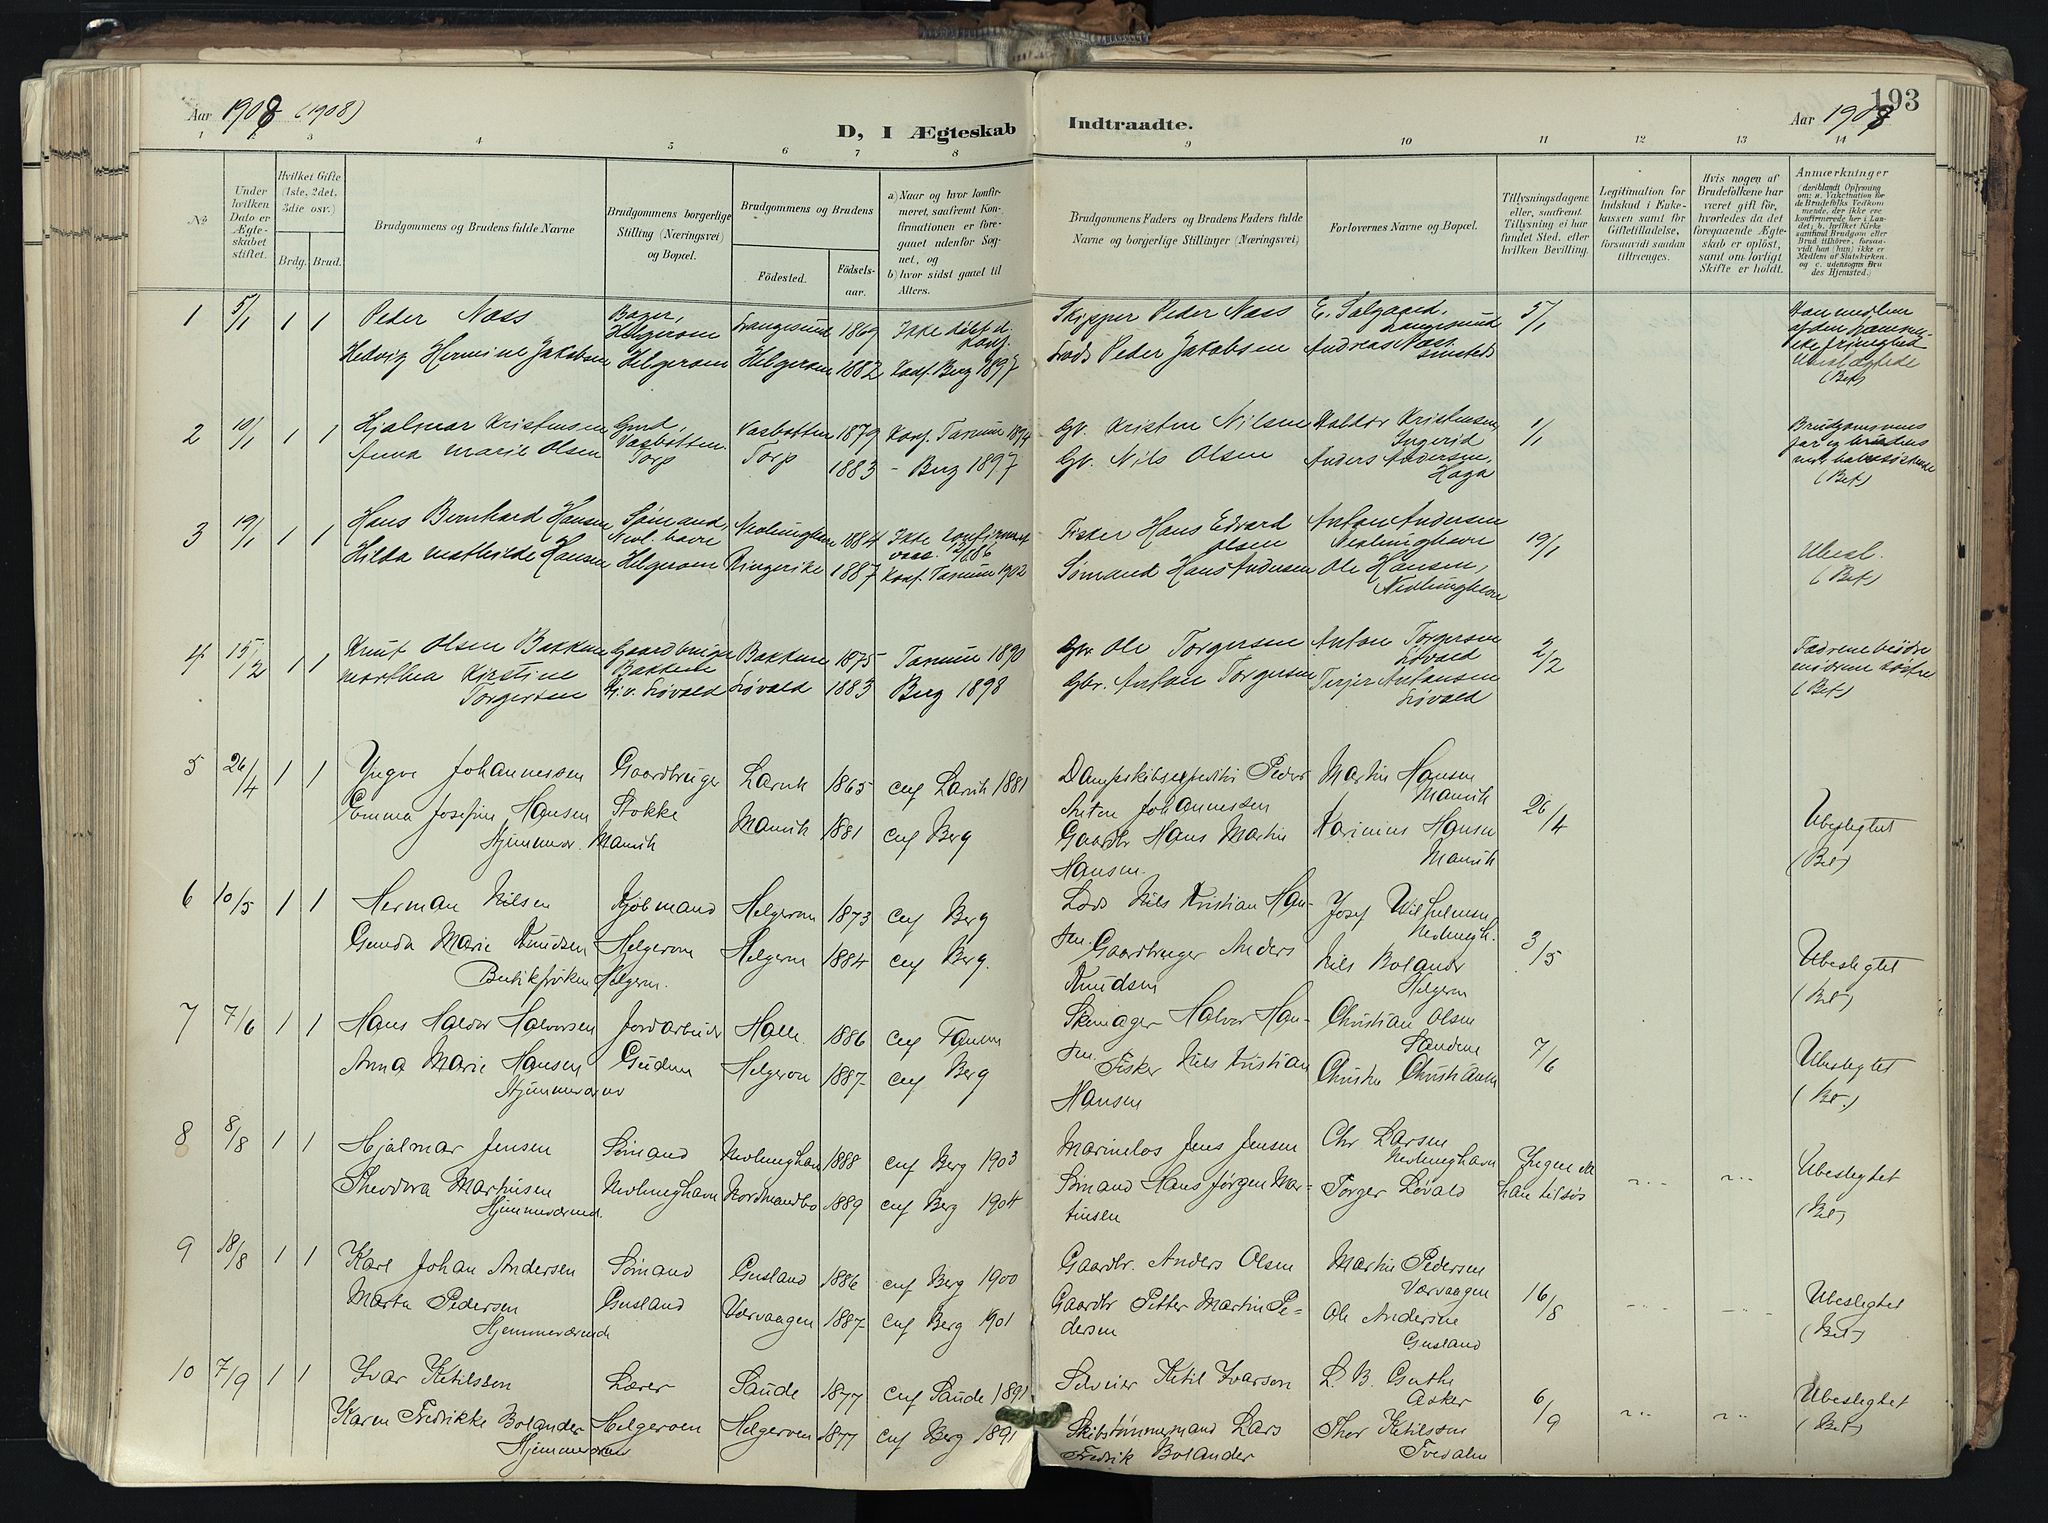 193
Aar 1908 (1908)
D, I Ægteskab
Indtraadte.
Aar 1908
1 2 3 4 5 6 7 8 9 10 11 12 13 14
№
Under hvilken Dato er Ægteskabet stiftet.
Hvilket Gifte (1ste, 2det, 3die osv.)
Brdg. Brud.
Brudgommens og Brudens fulde Navne
Brudgommens borgerlige Stilling (Næringsvei) og Bopæl.
Brudgommens og Brudens
Fødested. Fødselsaar.
a) Naar og hvor konfirmeret, saafremt Konfirmationen er foregaaet udenfor Sognet, og
b) hvor sidst gaaet til Alters.
Brudgommens Faders og Brudens Faders fulde Navne og borgerlige Stillinger (Næringsvei)
Forlovernes Navne og Bopæl.
Tillysningsdagene eller, saafremt Tillysning ei har fundet Sted, efter hvilken Bevilling.
Legitimation for Indskud i Enkekassen samt for Giftetilladelse, forsaavidt saadan tiltrænges.
Hvis nogen af Brudefolkene har været gift før, hvorledes da det foregaaende Ægteskab er opløst, samt om lovligt Skifte er holdt.
Anmærkninger
1 5/1 1 1 Peder Næss Bager, Helgeroen Langesund 1869 Ikke døbt el. konf. Skipper Peder Næss E. Salgaard, Langesund 5/1
Hedvig Hermine Jakobsen Helgeroen Helgeroen 1882 Konf. Berg 1897 Lods Peder Jakobsen Andreas Næss
(Bet)
2 10/1 1 1 Hjalmar Kristensen Gmd, Vasbotten Vasbotten 1879 Konf. Tanum 1894 Gbr. Kristen Nilsen Haldor Kristensen 1/1 Brudgommens far og brudens
Anna Marie Olsen Torp Torp 1883 - Berg 1897 Gbr. Nils Olsen Anders Andersen, Haga
(Bet)
3 19/1 1 1 Hans Bernhard Hansen Sømand, Nevl. havn Nevlunghavn 1884 Ikke konfirmeret Fisker Hans Edvard Olsen Anton Andersen Nevlunghavn 19/1
Hilda Mathilde Hansen Helgeroen Ringerike 1887 Konf. Tanum 1902 Sømand Hans Andersen Ole Hansen, Nevlunghavn Ubesl. (Bet)
4 15/2 1 1 Knut Olsen Bakkene Gaardbruger Bakkene Bakkene 1875 Tanum 1890 Gbr. Ole Torgersen Anton Torgersen Løvald 2/2
Marthea Kirstine Torgersen Løvald Løvald 1883 Berg 1898 Gbr. Anton Torgersen Terjer Antonsen Løvald
(Bet)
5 26/4 1 1 Yngve Johannessen Gaardbruger Larvik 1865 cnf Larvik 1881 Dampskibsexpeditør Peder Anton Johannessen Martin Hansen Manvik 26/4
Emma Josefine Hansen Stokke Manvik 1881 cnf Berg Gaardbr Hans Martin Hansen. Karinius Hansen Manvik Ubeslegtet
Hjemmevær. Manvik (Bet)
6 10/5 1 1 Herman Nilsen Kjøbmand Helgeroen 1873 cnf Berg Lods Nils Kristian Hansen. Josef Wilhelmsen, Nevlungh.
Gunda Marie Knudsen Helgeroen Helgeroen 1884 cnf Berg. Gaardbruger Anders Knudsen Nils Bolander Helgeroen 3/5 Ubeslegtet
Butikfrøken Helgeroen. (Bet)
7 7/6 1 1 Hans Haldor Halvorsen Jordarbeider Halle. 1886 cnf Tanum Skomager Halvor Hansen. Christian Olsen Sandene 7/6
Anna Marie Hansen Helgeroen 1887 cnf Berg Fisker Nils Kristian Hansen Christen Christiansen Ubeslegtet
Hjemmeværende (Bet.)
8 8/8 1 1 Hjalmar Jensen Sømand Nevlunghavn 1888 cnf Berg 1903 Marinelos Jens Jensen Chr Larsen Nevlunghavn
Theodora Martinsen Nevlunghavn Nordmandbo 1889 cnf Berg 1904 Sømand Hans Jørgen Martinsen Torger Løvald Ubeslegtet
Hjemmeværend. (Bet)
9 18/8 1 1 Karl Johan Andersen Sømand Gusland 1886 cnf Berg 1900 Gaardbr. Anders Olsen Martin Pedersen Værvaagen 16/8
Marta Pedersen Gusland Værvaagen 1887 cnf Berg 1901 Gaardbr Petter Martin Pedersen Ole Andersen Gusland Ubeslegtet
Hjemmeværende (Bet)
10 7/9 1 1 Ivar Ketilssen Lærer Saude 1877 cnf Saude 1891 Selveier Ketil Ivarson L. B. Guthe Asker 6/9
Karen Fredrikke Bolander Helgeroen Helgeroen 1877 cnf Berg 1891 Skibstømmermand Lars Fredrik Bolander Thor Ketilsson Tvedalen Ubeslegtet
Hjemmeværende (Bet)